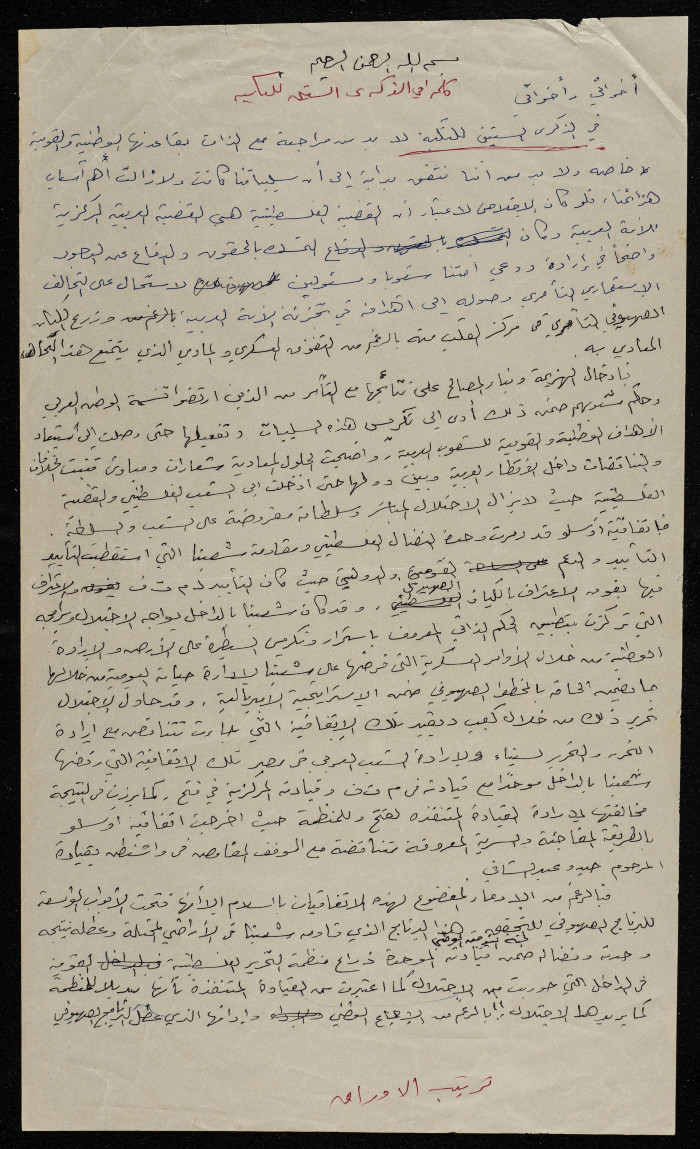 بسم الله الرحمن الرحيم
كلمة في الذكرى الستين للنكبة
أخواتي وأخواني
في الذكرى الستين للنكبة لا بد من مراجعة مع الذات بقاعدتها الوطنية والقومية
خاصة ولا بد من اننا نتفق بداية إلى أن سلبياتنا كانت ولا زالت أهم أسباب
هزائمنا، فلو كان الإخلاص لاعتبار أن القضية الفلسطينية هي القضية العربية المركزية
للأمة العربية وكان التمسك بالحقوق والدفاع عن الوجود
واضحاً في إرادة ووعي أمتنا شعوبا ومسئولين لاستحال على التحالف
الاستعماري التآمري وصوله إلى اهدافه في تجزئة الأمة العربية وزرع الكيان
الصهيوني التآمري في مركز القلب منه بالرغم من التفوق العسكري والمادي الذي يتمتع هذا التحالف
المعادي به.
فإدخال الهزيمة وتبادل المصالح على نتائجها مع التآمر من الذين ارتضوا قسمة الوطن العربي
وحكم شعوبهم ضمن ذلك أدى إلى تكريس هذه السلبيات وتفعيلها حتى وصلت إلى استبعاد
الأهداف الوطنية والقومية للشعوب العربية، وأضحت الحلول المعادية شعارات
والتناقضات داخل الأقطار العربية وبين دولها حتى ادخلت إلى الشعب الفلسطيني والقضية
الفلسطينية حيث لا يزال الاحتلال المباشر وسلطاته مفروضة على الشعب والسلطة.
فاتفاقية أوسلو قد دمرت وحدة النضال الفلسطيني ومقاومة شعبنا التي استقطبت التأييد
التأييد والدعم القومي والدولي حيث كان التأييد ل م ت ف والاعتراف
فيها يفوق الاعتراف بالكيان الصهيوني، وقد كان شعبنا بالداخل يواجه الاحتلال وبرامجه
التي تركزت بتطبيق الحكم الذاتي المعروف باستمرار وتكريس السيطرة على الأرض والإرادة
الوطنية من خلال الأوامر العسكرية التي فرضها على شعبنا لإدارة حياته اليومية من خلالها
بما يضمن الحاقه بالمخطط الصهيوني ضمن الاستراتيجية الامبريالية، وقد حاول الاحتلال
تمرير ذلك من خلال كمب ديفيد تلك الاتفاقية التي جاءت تتناقض مع إرادة
التحرر والتحرير لسيناء ولإرادة الشعب العربي في مصر تلك الاتفاقية التي رفضها
شعبنا بالداخل موحداً مع قيادته في م ت ف وقيادته المركزية في فتح، كما برزت في النتيجة
مخالفتها لإرادة القيادة المتنفذة لفتح وللمنظمة حيث اخرجت اتفاقية اوسلو
بالطريقة المفاجئة والسرية المعروفة تتناقض مع الموقف المفاوض في واشنطن بقيادة
المرحوم حيدر عبد الشافي.
فبالرغم من الإدعاء المفضوح لهذه الاتفاقيات بالسلام إلا أنها فتحت الأبواب الواسعة
للبرنامج الصهيوني للتحقق هذا البرنامج الذي قاومه شعبنا في الأراضي المحتلة وعطله نتيجة
وحدته ونضاله ضمن قيادته الموحدة ذراع منظمة التحرير الفلسطينية القوية
لجنة التوجيه الوطني
في الداخل التي حوربت من الاحتلال كما اعتبرت من القيادة المتنفذة كأنها بديلا للمنظمة
كما يريدها الاحتلال !! بالرغم من الإجماع الوطني وإيمانها الذي عطل البرنامج الصهيوني
ترتيب الأوراق